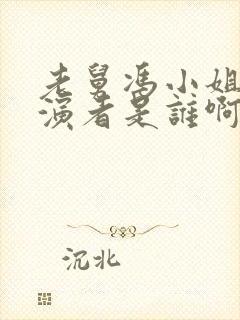 老舅冯小姐
演者是誰啊
沉北